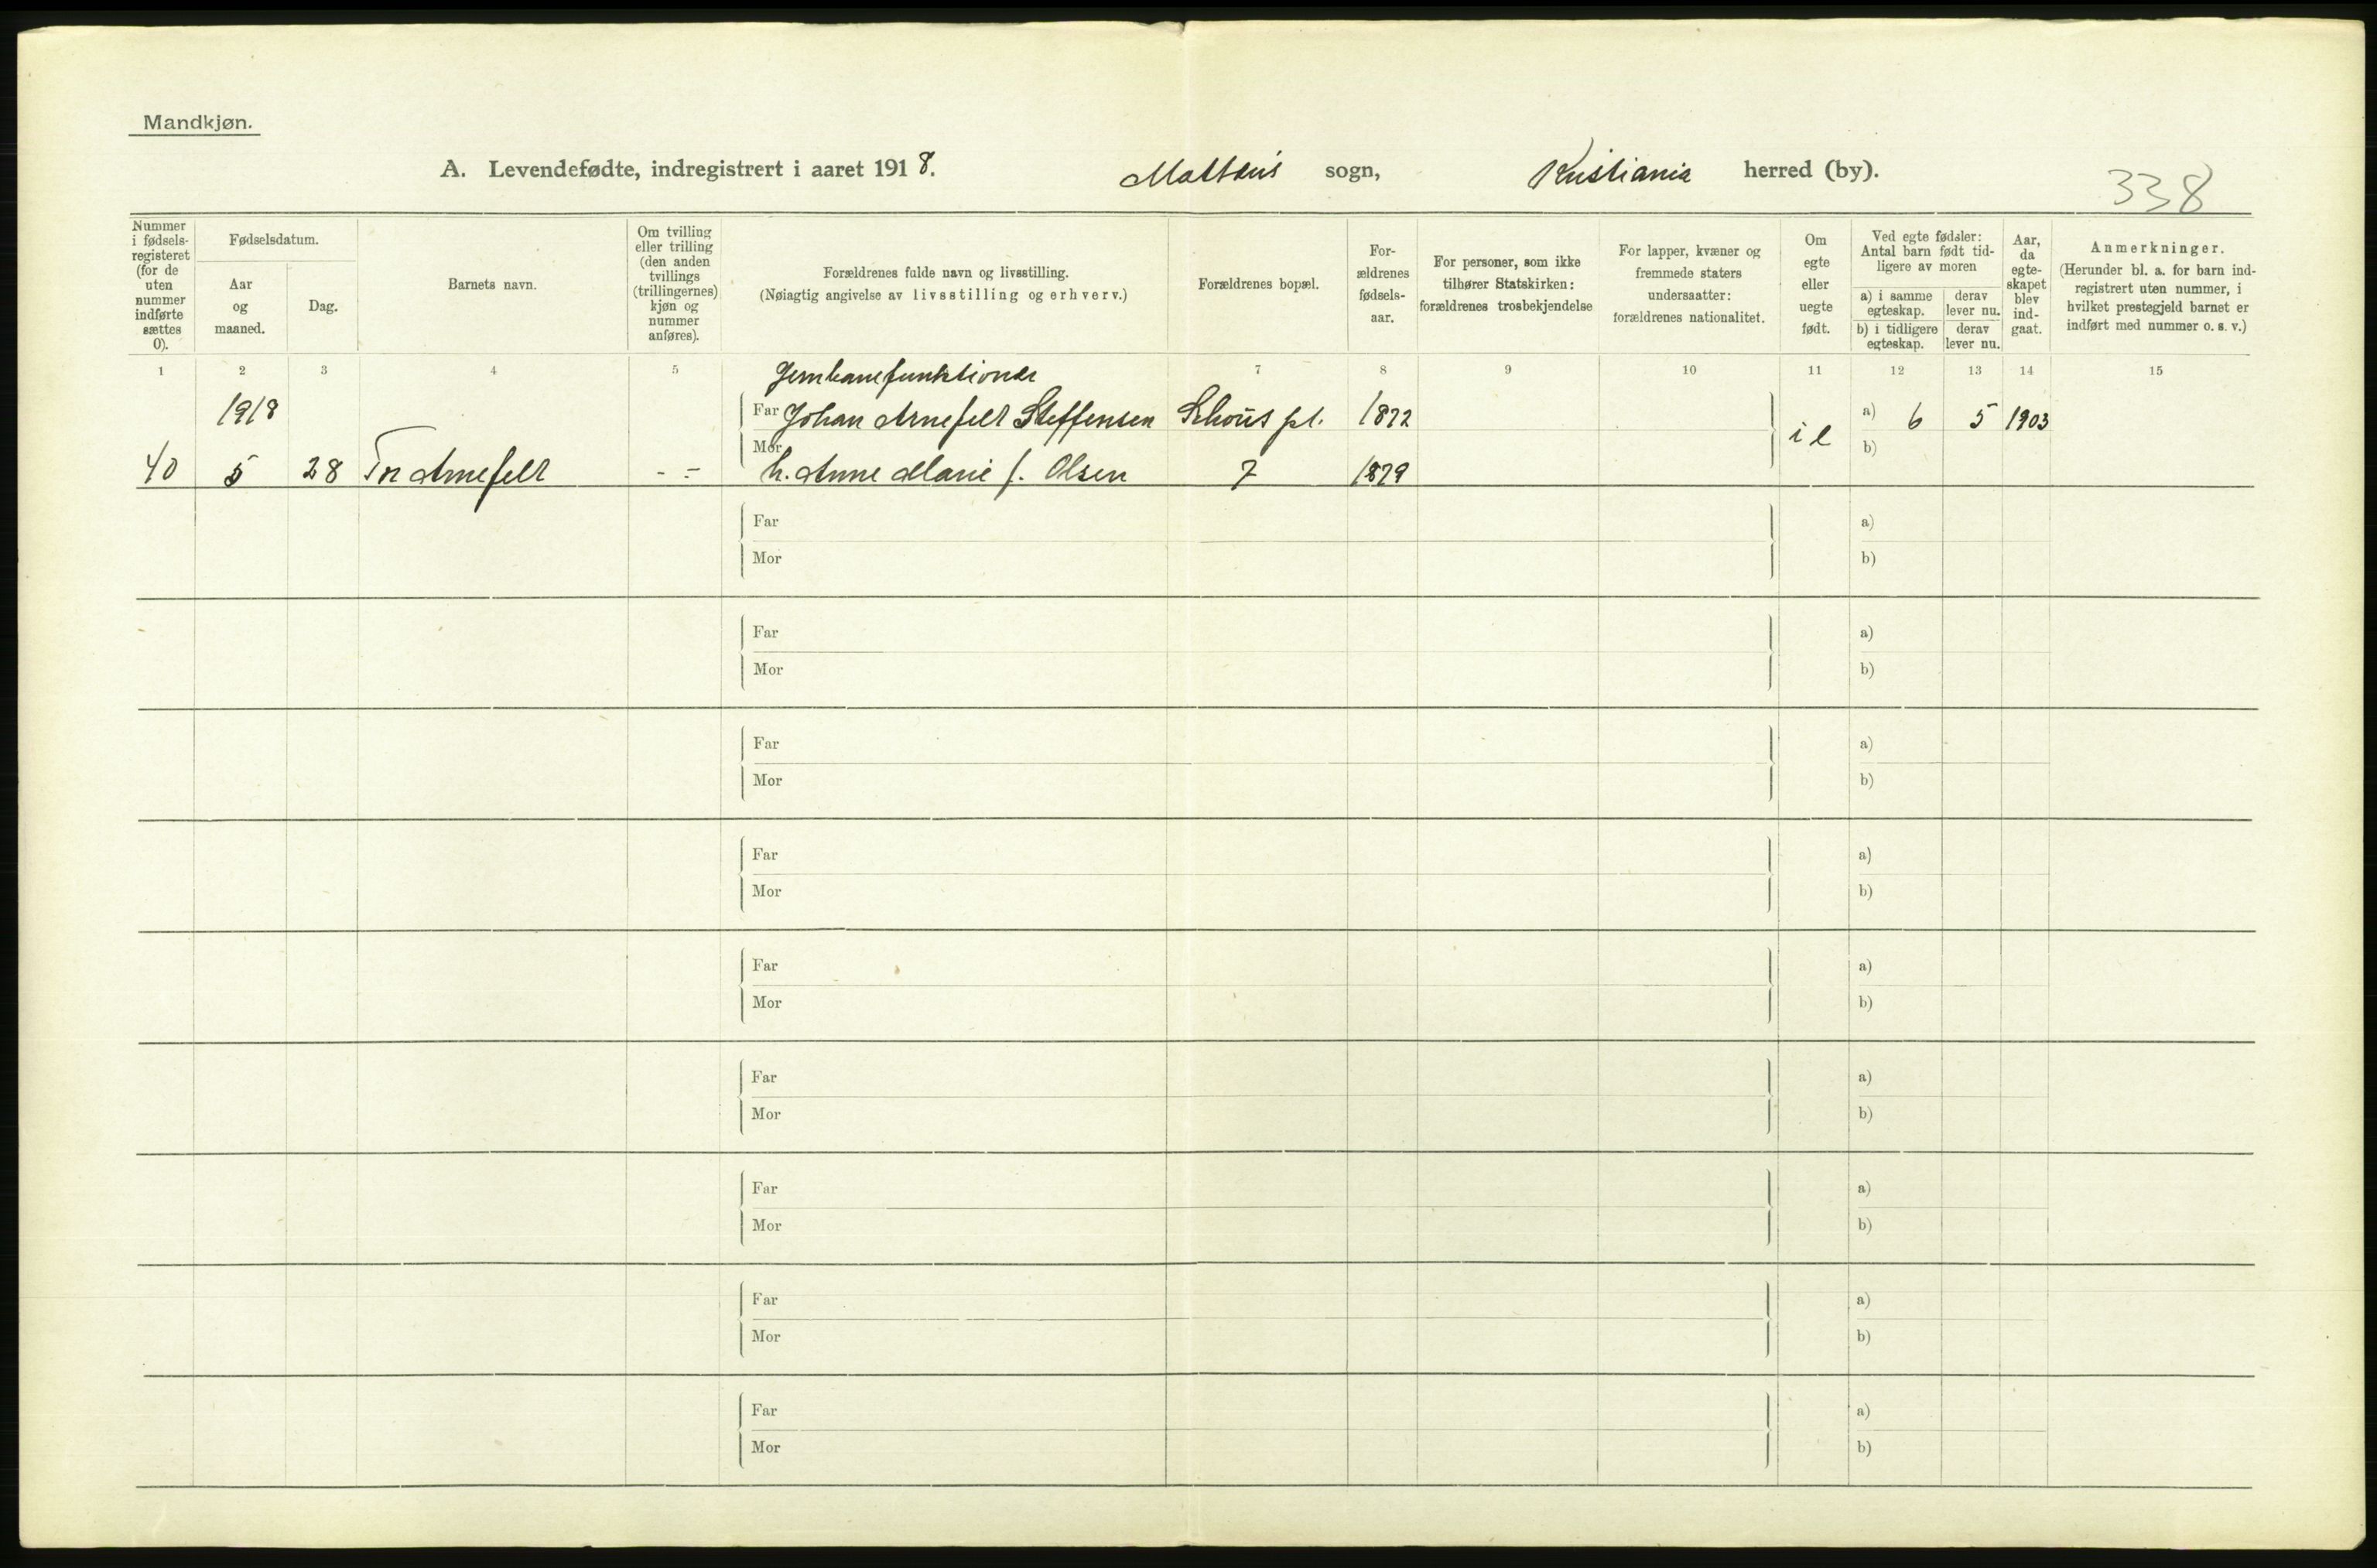 Mandkjøn.
A. Levendefødte, indregistrert i aaret 1918. Mattæus sogn, Kristiania herred (by).
338
Nummer i fødselsregisteret (for de uten nummer indførte sættes 0).
Fødselsdatum.
Aar og maaned.
Dag.
Barnets navn.
Om tvilling eller trilling (den anden tvillings (trillingernes) kjøn og nummer anføres).
Forældrenes fulde navn og livsstilling.
(Nøiagtig angivelse av livsstilling og erhverv.)
Forældrenes bopæl.
Forældrenes fødselsaar.
For personer, som ikke tilhører Statskirken: forældrenes trosbekjendelse
For lapper, kvæner og fremmede staters undersaatter: forældrenes nationalitet.
Om egte eller uegte født.
Ved egte fødsler: Antal barn født tidligere av moren
a) i samme egteskap.
derav lever nu.
b) i tidligere egteskap.
derav lever nu.
Aar, da egteskapet blev indgaat.
Anmerkninger.
(Herunder bl. a. for barn indregistrert uten nummer, i hvilket prestegjeld barnet er indført med nummer o. s. v.)
1 2 3 4 5 7 8 9 10 11 12 13 14 15
Jernbanefunktionær
1918 Far Johan Arnefelt Steffensen Schous pl. 1872 a) 6 5 1903
40 5 28 Arnefelt - - Mor h. Anne Marie f. Olsen 7 1879 i e b)
Far a)
Mor b)
Far a)
Mor b)
Far a)
Mor b)
Far a)
Mor b)
Far a)
Mor b)
Far a)
Mor b)
Far a)
Mor b)
Far a)
Mor b)
Far a)
Mor b)